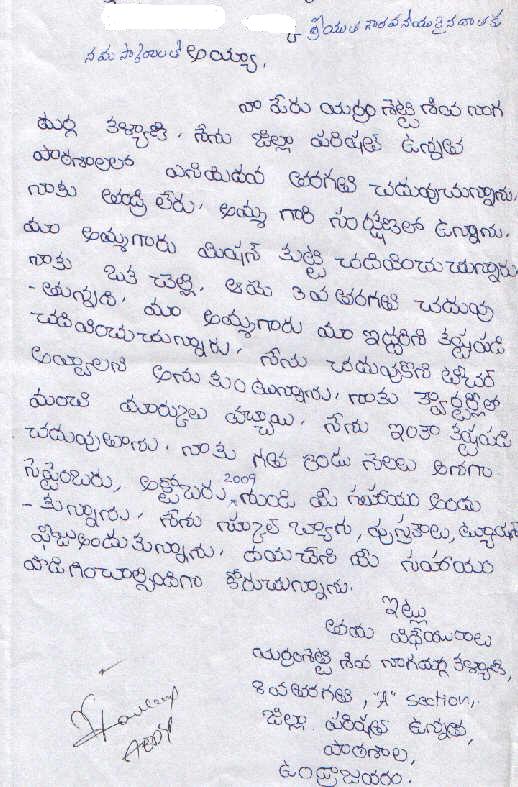 శ్రీయుత గౌరవనీయులైన దాతకు
నమస్కారాలతో అయ్యా,
నా పేరు యర్రంశెట్టి శివ నాగ
దుర్గ కళ్యాణి. నేను జిల్లా పరిషత్ ఉన్నత
పాఠశాలలో ఎనిమిదవ తరగతి చదువుచున్నాను.
నాకు తండ్రి లేరు. అమ్మ గారి సంరక్షణలో ఉన్నాను.
మా అమ్మగారు మిషన్ కుట్టి చదివించుచున్నారు
నాకు ఒక చెల్లి. ఆమె 3వ తరగతి చదువు
-తున్నది. మా అమ్మగారు మా ఇద్దరిని కష్టపడి
చదివించుచున్నారు. నేను చదువుకొని టీచర్
అవ్వాలని అనుకుంటున్నాను. నాకు క్వార్టర్లీలో
మంచి మార్కులు వచ్చాయి. నేను ఇంకా కష్టపడి
చదువుతాను. నాకు గత రెండు నెలలు అనగా
సెప్టెంబరు, అక్టోబరు 2009 నుండి మీ సహాయం అందు
-కున్నాను. నేను స్కూల్ బ్యాగు, పుస్తకాలు, ట్యూషన్
ఫీజు అందుకున్నాను. దయచేసి మీ సహాయం
పొడిగించాల్సిందిగా కోరుచున్నాను.
ఇట్లు
తమ విధేయురాలు
యర్రంశెట్టి శివ నాగదుర్గ కళ్యాణి,
8వ తరగతి, "A" section,
జిల్లా పరిషత్ ఉన్నత,
పాఠశాల,
ఉండ్రాజవరం.